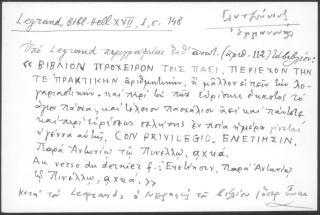 Legrand, Bibl. Hell. XVII, 1, σ. 148
Γλυτζούνιος
Ἐμμανουήλ
Ὑπὸ Legrand περιγράφεται (ἀριθ. 112)
« ΒΙΒΛΙΟΝ ΠΡΟΧΕΙΡΟΝ ΤΟΙΣ ΠΑΣΙ, ΠΕΡΙΕΧΟΝ ΤΗΝ
ΤΕ ΠΡΑΚΤΙΚΗΝ ἀριθμητικὴν, ἢ μᾶλλον εἰπεῖν τὴν λο-
γαριαστικὴν. καὶ περὶ τοῦ πῶς εὑρίσκει ἕκαστος τὸ
ἅγιον πάσχα, καὶ τέλειον πασχάλιον ἀεὶ καὶ πάντοτε
καὶ περὶ εὑρέσεως σελήνης ἐν ποίᾳ ἡμέρᾳ γίνεται
ἡ γέννα αὐτῆς. CON PRIVILEGIO. ΕΝΕΤΙΗΣΙΝ.
Παρὰ Ἀντωνίῳ τῷ Πινέλλῳ, αχκα.
Au verso du dernier f.: Ἐνετίησιν. Παρὰ Ἀντωνίῳ
τῷ Πινέλλῳ, αχκα. »
κατὰ τὸν Legrand, ὁ τὸ βιβλίον